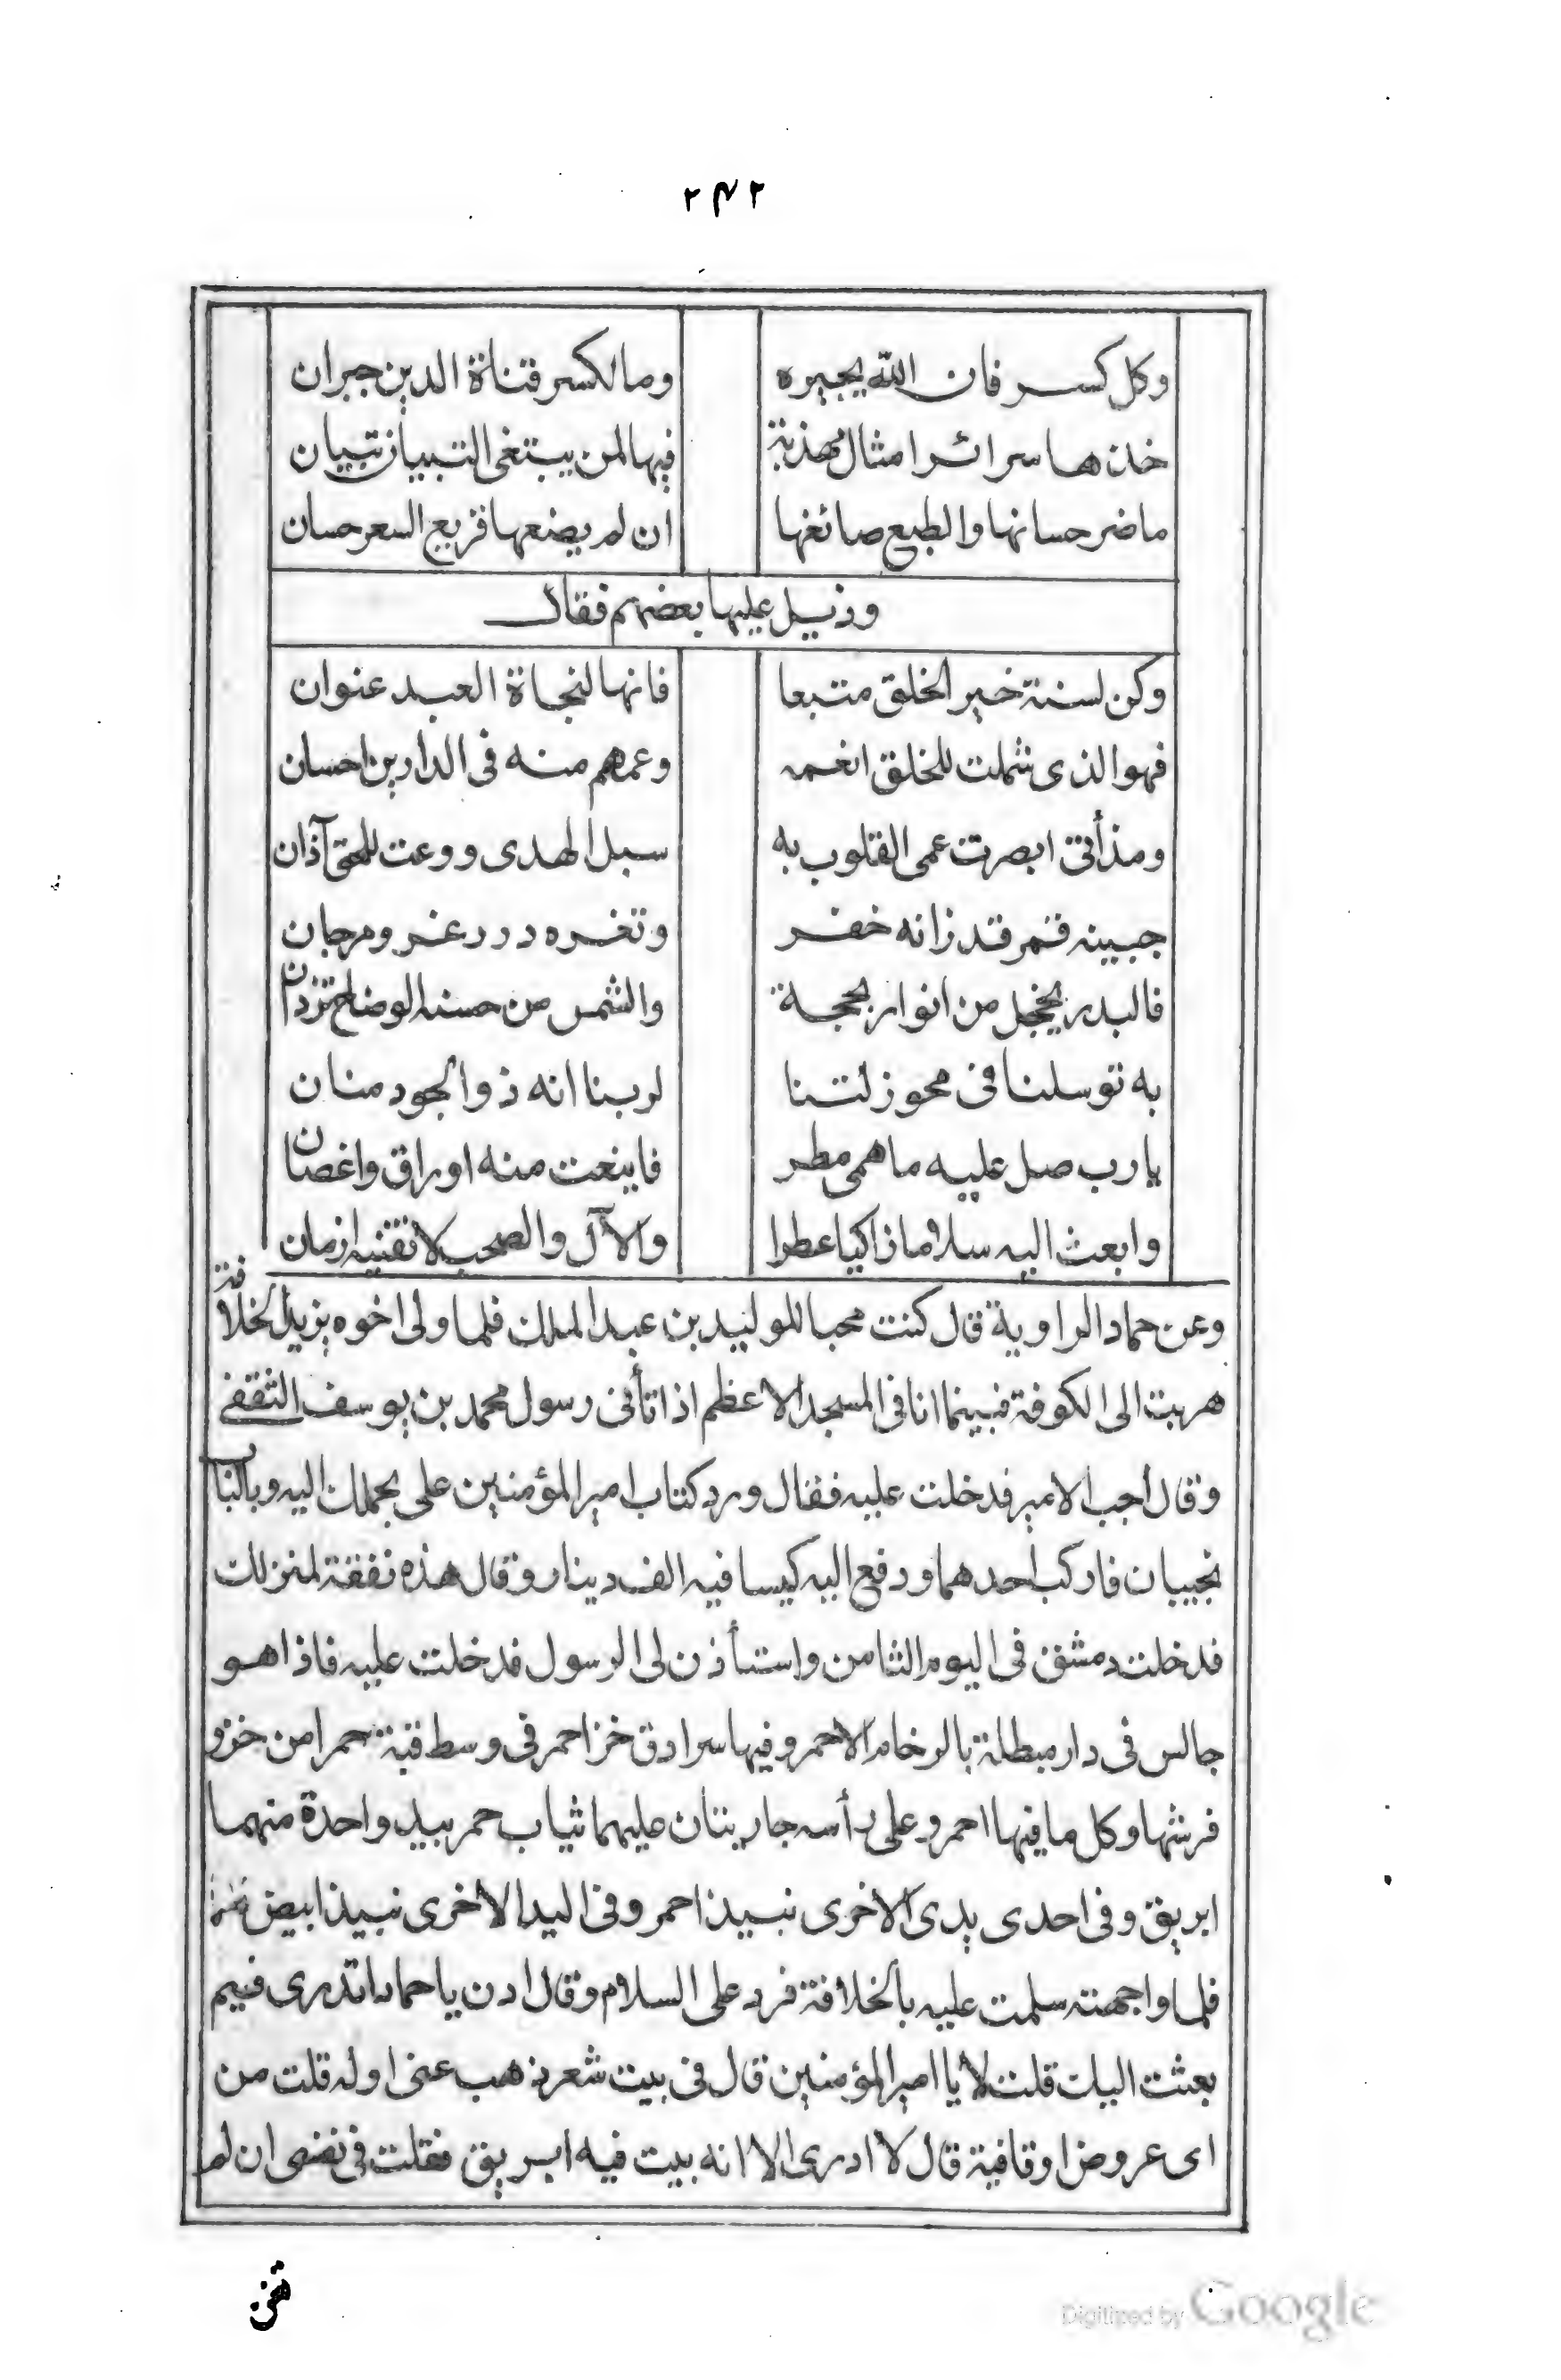 ٢٤٢
وكل كسر فان الله يجبره وما لكسر قناة الدين جبران
خذها سرائر امثال مهذبة فيها لمن يبتغى التبيان تبيان
ما ضر حسانها والطبع صائغها ان لم يصنعها قريع السعر حسان
وذيل عليها بعضهم فقال
وكن لسنة خير الخلق متبعا فانها لنجاة العبد عنوان
فهو الذى شملت للخلق انعمه وعمهم منه فى الدارين احسان
ومذ أتى ابصرت عمى القلوب به سبل الهدى ووعت للحق آذان
جبينه قمر قد زانه خفر وثغره درر غر ومرجان
فالبدر يخجل من انوار بحجة والشمس من حسنه الوضاح تزدان
به توسلنا فى محو زلتنا لربنا انه ذو الجود منان
يا رب صل عليه ما همى مطر فاينعت منه اوراق واغصان
وابعث اليه سلاما زاكيا عطرا والآل والصحب لا تفنيه ازمان
وعن حماد الراوية قال كنت محبا للوليد بن عبد الملك فلما ولى اخوه يزيد الخلافة
هربت الى الكوفة فبينما انا فى المسجد الاعظم اذ اتأنى رسول محمد بن يوسف الثقفى
وقال اجب الامير فدخلت عليه فقال ورد كتاب امير المؤمنين على بحملك اليه وبالباب
نجيبان فاركب احدهما ودفع اليه كيسا فيه الف دينار وقال هذه نفقة لمنزلك
فدخلت دمشق فى اليوم الثامن واستأذن لى الرسول فدخلت عليه فاذا هو
جالس فى دار مبطلة بالرخام الاحمر وفيها سرادق خز احمر فى وسط قبة حمرا من خز و
فرشها وكل ما فيها احمر وعلى رأسه جاريتان عليهما ثياب حمر بيد واحدة منهما
ابريق وفى احدى يدى الاخرى نبيذ احمر وفى اليد الاخرى نبيذ ابيض
فلما واجهته سلمت عليه بالخلافة فرد على السلام وقال ادن يا حماد اتدرى فيم
بعثت اليك قلت لا يا امير المؤمنين قال فى بيت شعر ذهب عنى اوله قلت من
اى عروض او قافية قال لا ادرى الا انه بيت فيه ابريق فقلت فى نفسى ان لم
Digitized by Google